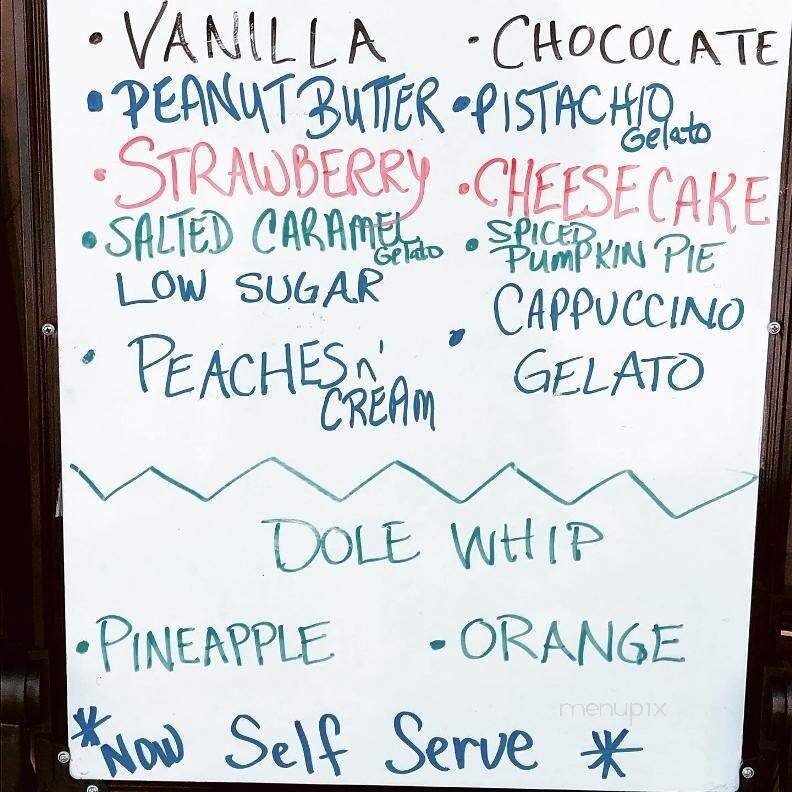 • VANILLA • CHOCOLATE
• PEANUT BUTTER • PISTACHIO
Gelato
• STRAWBERRY • CHEESECAKE
• SALTED CARAMEL
Gelato
LOW SUGAR
• SPICED
PUMPKIN PIE
• PEACHES n'
CREAM
• CAPPUCCINO
GELATO
DOLE WHIP
• PINEAPPLE • ORANGE
* NOW Self Serve *
menupix